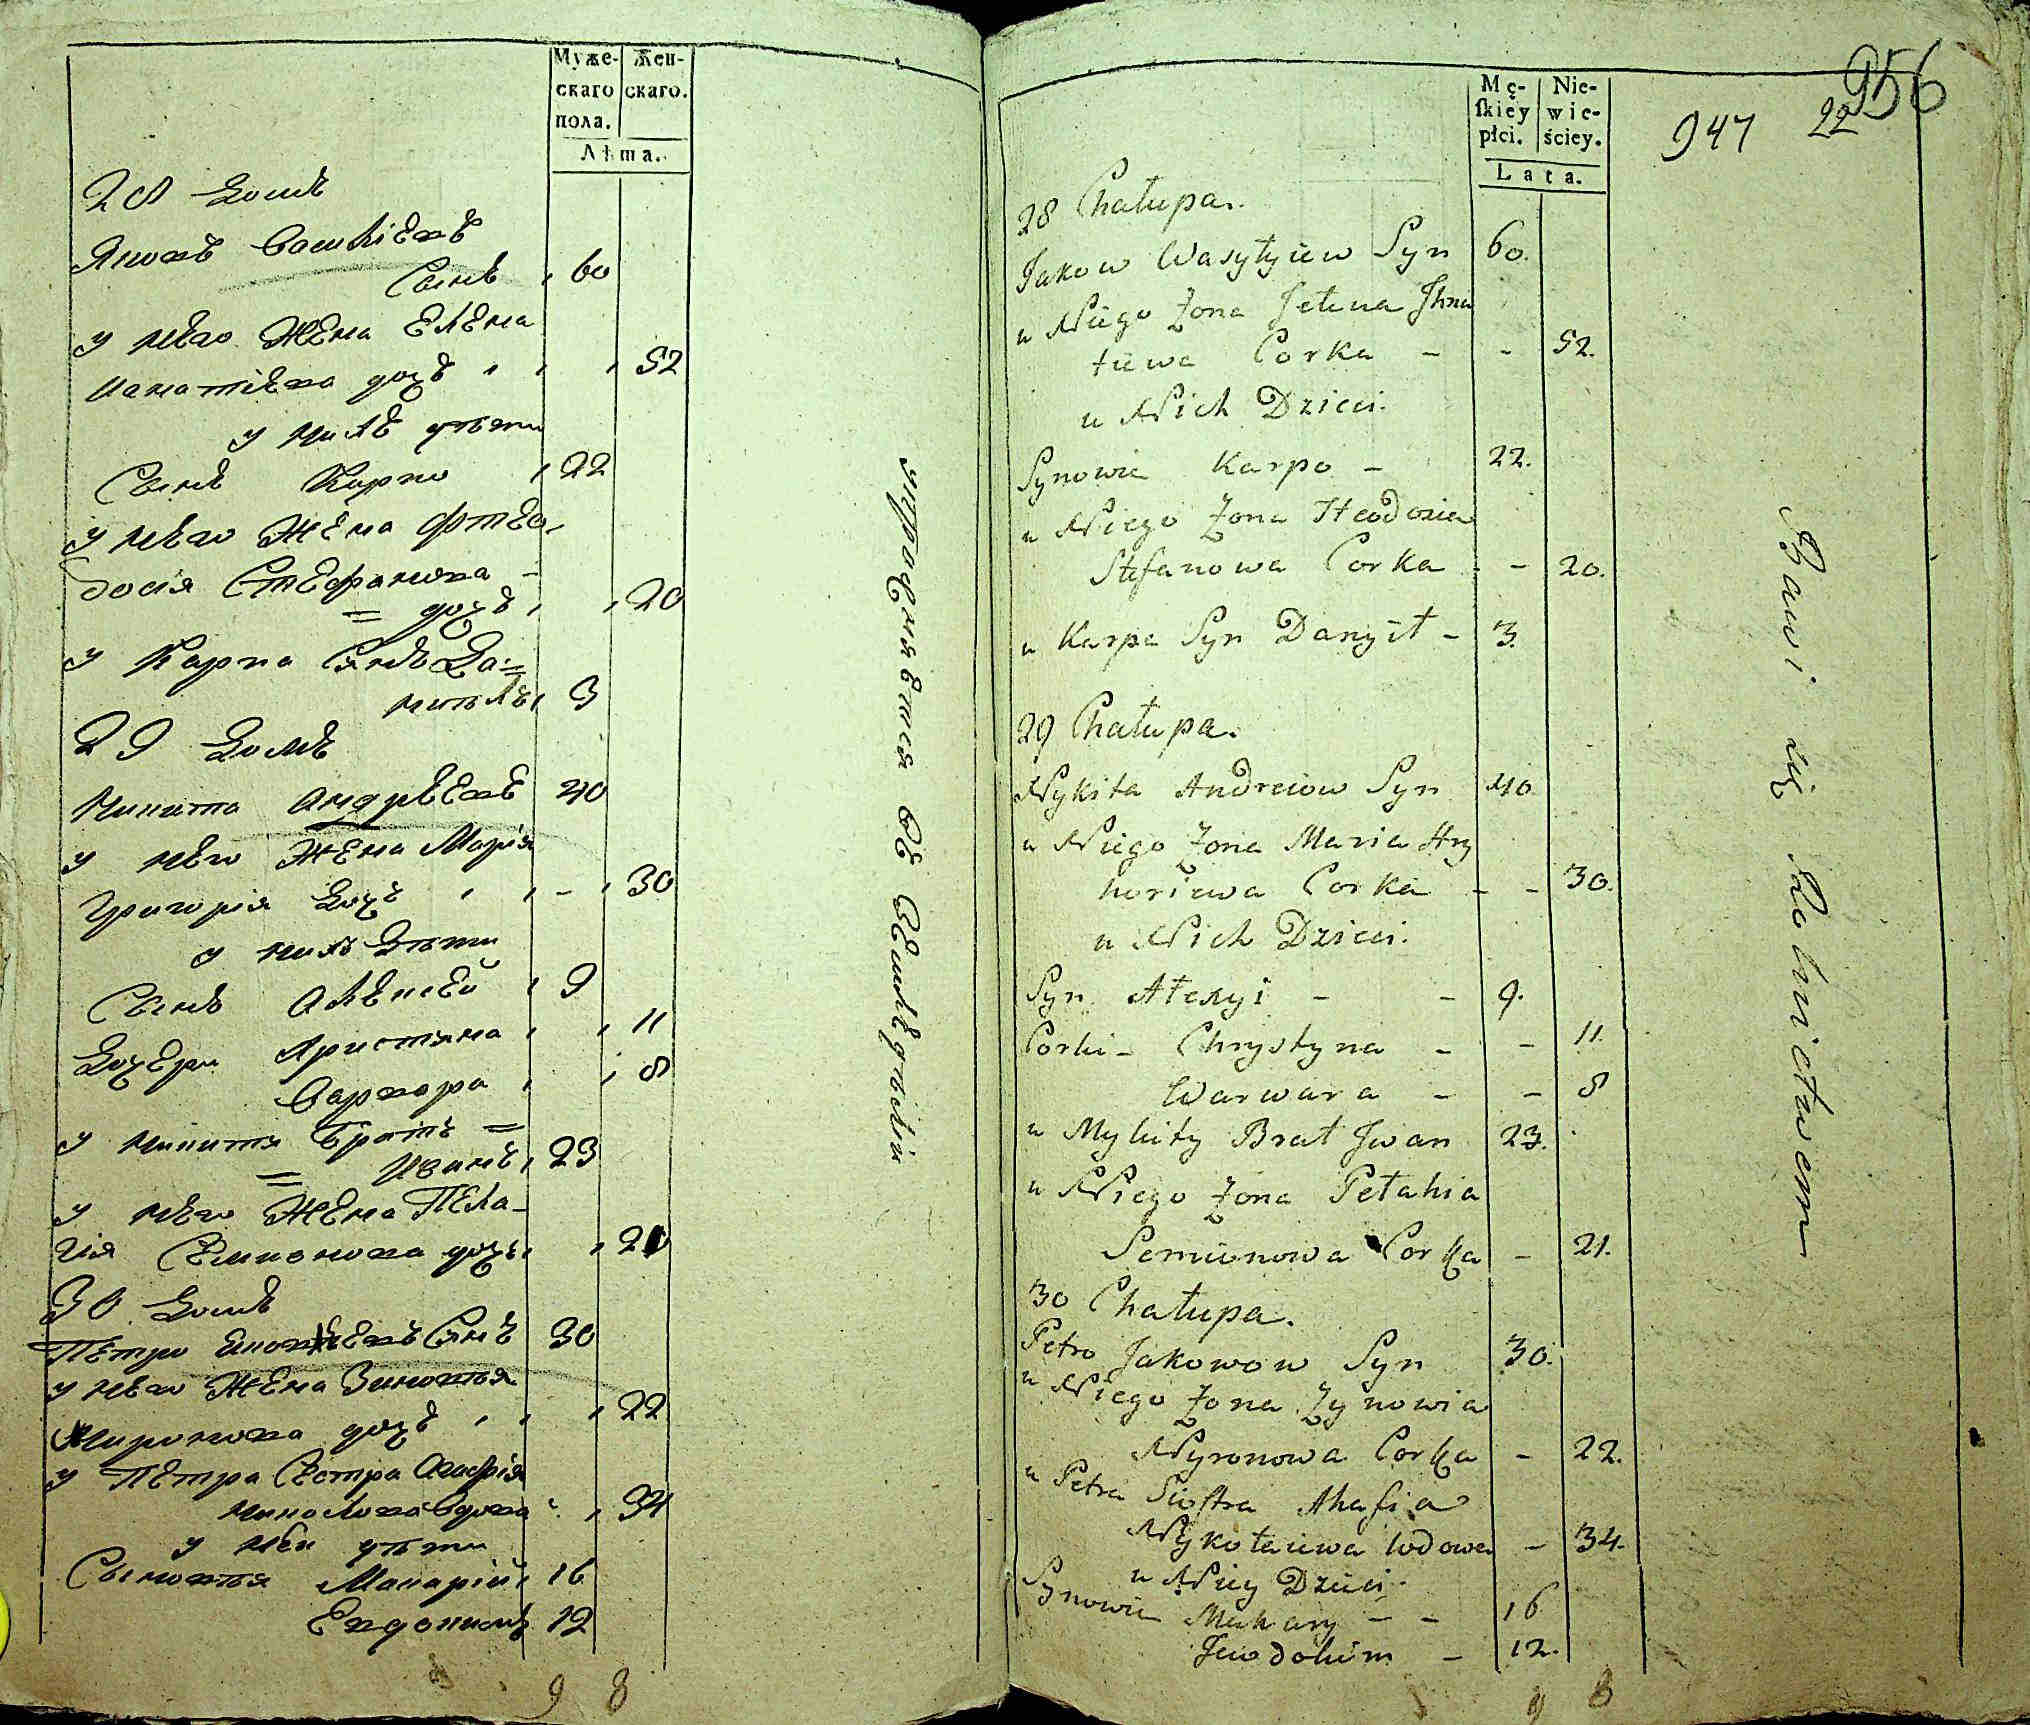 Муже-
скаго
пола.
Жен-
скаго.
Лѣта.
28 Домъ
Яковъ Василіевъ
Сынъ 60
у него Жена Елена
Игнатіева дочь 52
у нихъ дѣти
Сынъ Карпо 22
у него Жена Фтео-
досія Стефанова
дочь 20
у Карпа Сынъ Да=
ниилъ 3
29 Домъ
Никита Андрѣевъ 40
у него Жена Марія
Григорія Дочь 30
у нихъ Дѣти
Сынъ Алексей 9
Дочери Христина 11
Варвара 8
у Никиты Братъ =
= Иванъ 23
у него Жена Пела-
гія Семионова дочь 21
30 Домъ
Петро Яковлевъ Сынъ 30
у него Жена Зиновія
Миронова дочь 22
у Петра Сестра Агафія
Николова Вдова 34
у неи дѣти
Сыновья Макарій 16
Евдокимъ 12
9 8
упражняется въ земледѣліи
Mę-
ſkiey
płci.
Nie-
wie-
ściey.
Lata.
947
22
956
28 Chałupa.
Jakow Wasyłyiew Syn 60.
u Niego Żona Jełena Ihna
tiewa Corka - - 52.
u Nich Dzieci.
Synowie Karpo - 22.
u Niego Żona Fteodozia
Stefanowa Corka - - 20.
u Karpa Syn Danyił - 3.
29 Chałupa.
Nykita Andreiow Syn 40
u Niego Żona Maria Hry
horiewa Corka - - 30.
u Nich Dzieci.
Syn Ałexyi - - 9.
Corki - Chrystyna - - 11.
Warwara - - 8
u Mykity Brat Iwan 23.
u Niego Żona Pełahia
Semionowa Corka - 21.
30 Chałupa.
Petro Jakowow Syn 30.
u Niego Żona Zynowia
Myronowa Corka - 22.
u Petra Siostra Ahafia
Mykołaiewa Wdowa - 34.
u Niey Dzieci.
Synowie Makary - - 16
Jewdokim - 12.
9 8
Bawi się Rolnictwem